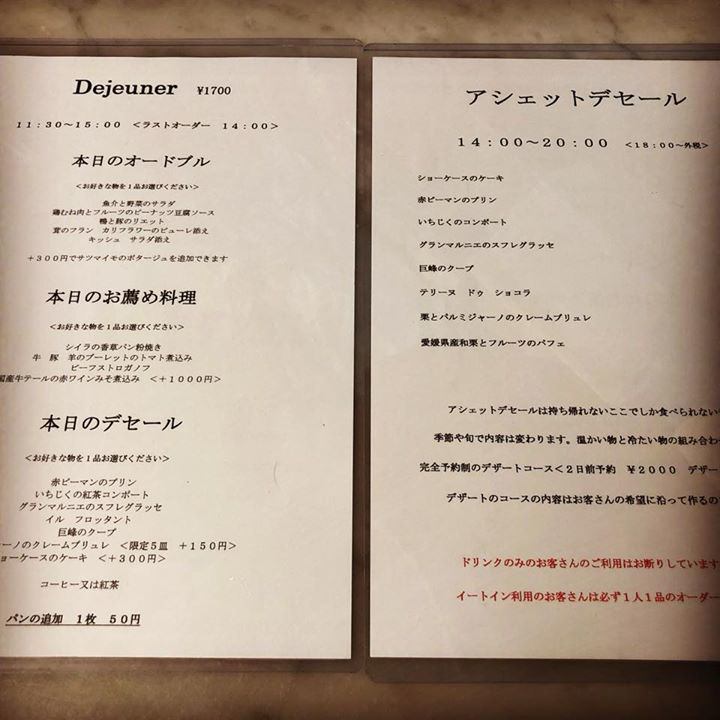 Dejeuner ¥1700
11:30～15:00 <ラストオーダー 14:00>
本日のオードブル
<お好きな物を1品お選びください>
魚介と野菜のサラダ
鶏むね肉とフルーツのピーナッツ豆腐ソース
鴨と豚のリエット
茸のフラン カリフラワーのピューレ添え
キッシュ サラダ添え
+300円でサツマイモのポタージュを追加できます
本日のお薦め料理
<お好きな物を1品お選びください>
シイラの香草パン粉焼き
牛 豚 羊のブーレットのトマト煮込み
ビーフストロガノフ
国産牛テールの赤ワインみそ煮込み <+1000円>
本日のデセール
<お好きな物を1品お選びください>
赤ピーマンのプリン
いちじくの紅茶コンポート
グランマルニエのスフレグラッセ
イル フロッタント
巨峰のクープ
ーノのクレームブリュレ <限定5皿 +150円>
ョーケースのケーキ <+300円>
コーヒー又は紅茶
パンの追加 1枚 50円
アシェットデセール
14:00～20:00 <18:00～外税>
ショーケースのケーキ
赤ピーマンのプリン
いちじくのコンポート
グランマルニエのスフレグラッセ
巨峰のクープ
テリーヌ ドゥ ショコラ
栗とパルミジャーノのクレームブリュレ
愛媛県産和栗とフルーツのパフェ
アシェットデセールは持ち帰れないここでしか食べられない
季節や旬で内容は変わります。温かい物と冷たい物の組み合わ
完全予約制のデザートコース<2日前予約 ¥2000 デザー
デザートのコースの内容はお客さんの希望に沿って作るの
ドリンクのみのお客さんのご利用はお断りしています
イートイン利用のお客さんは必ず1人1品のオーダー